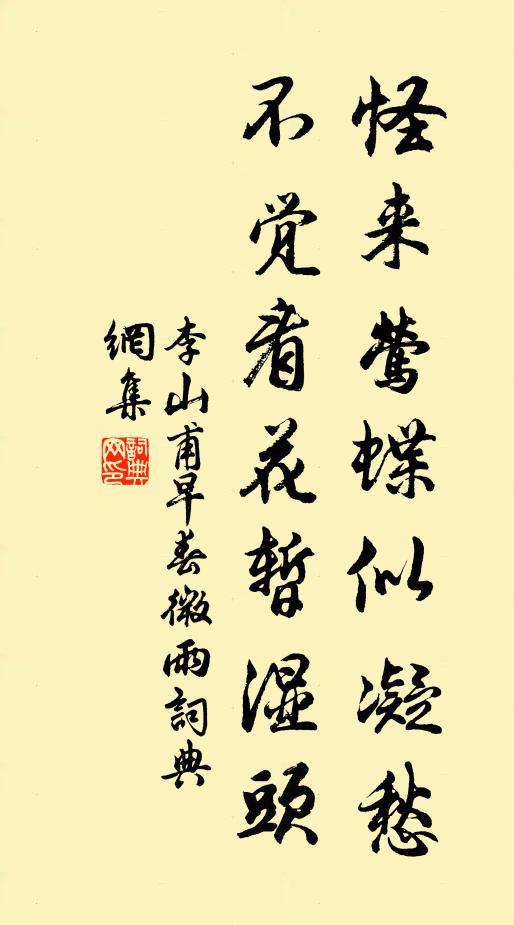 怪来莺蝶似凝愁
不觉看花暂湿頭
李山甫早春微雨詞典
網集
詞典网印